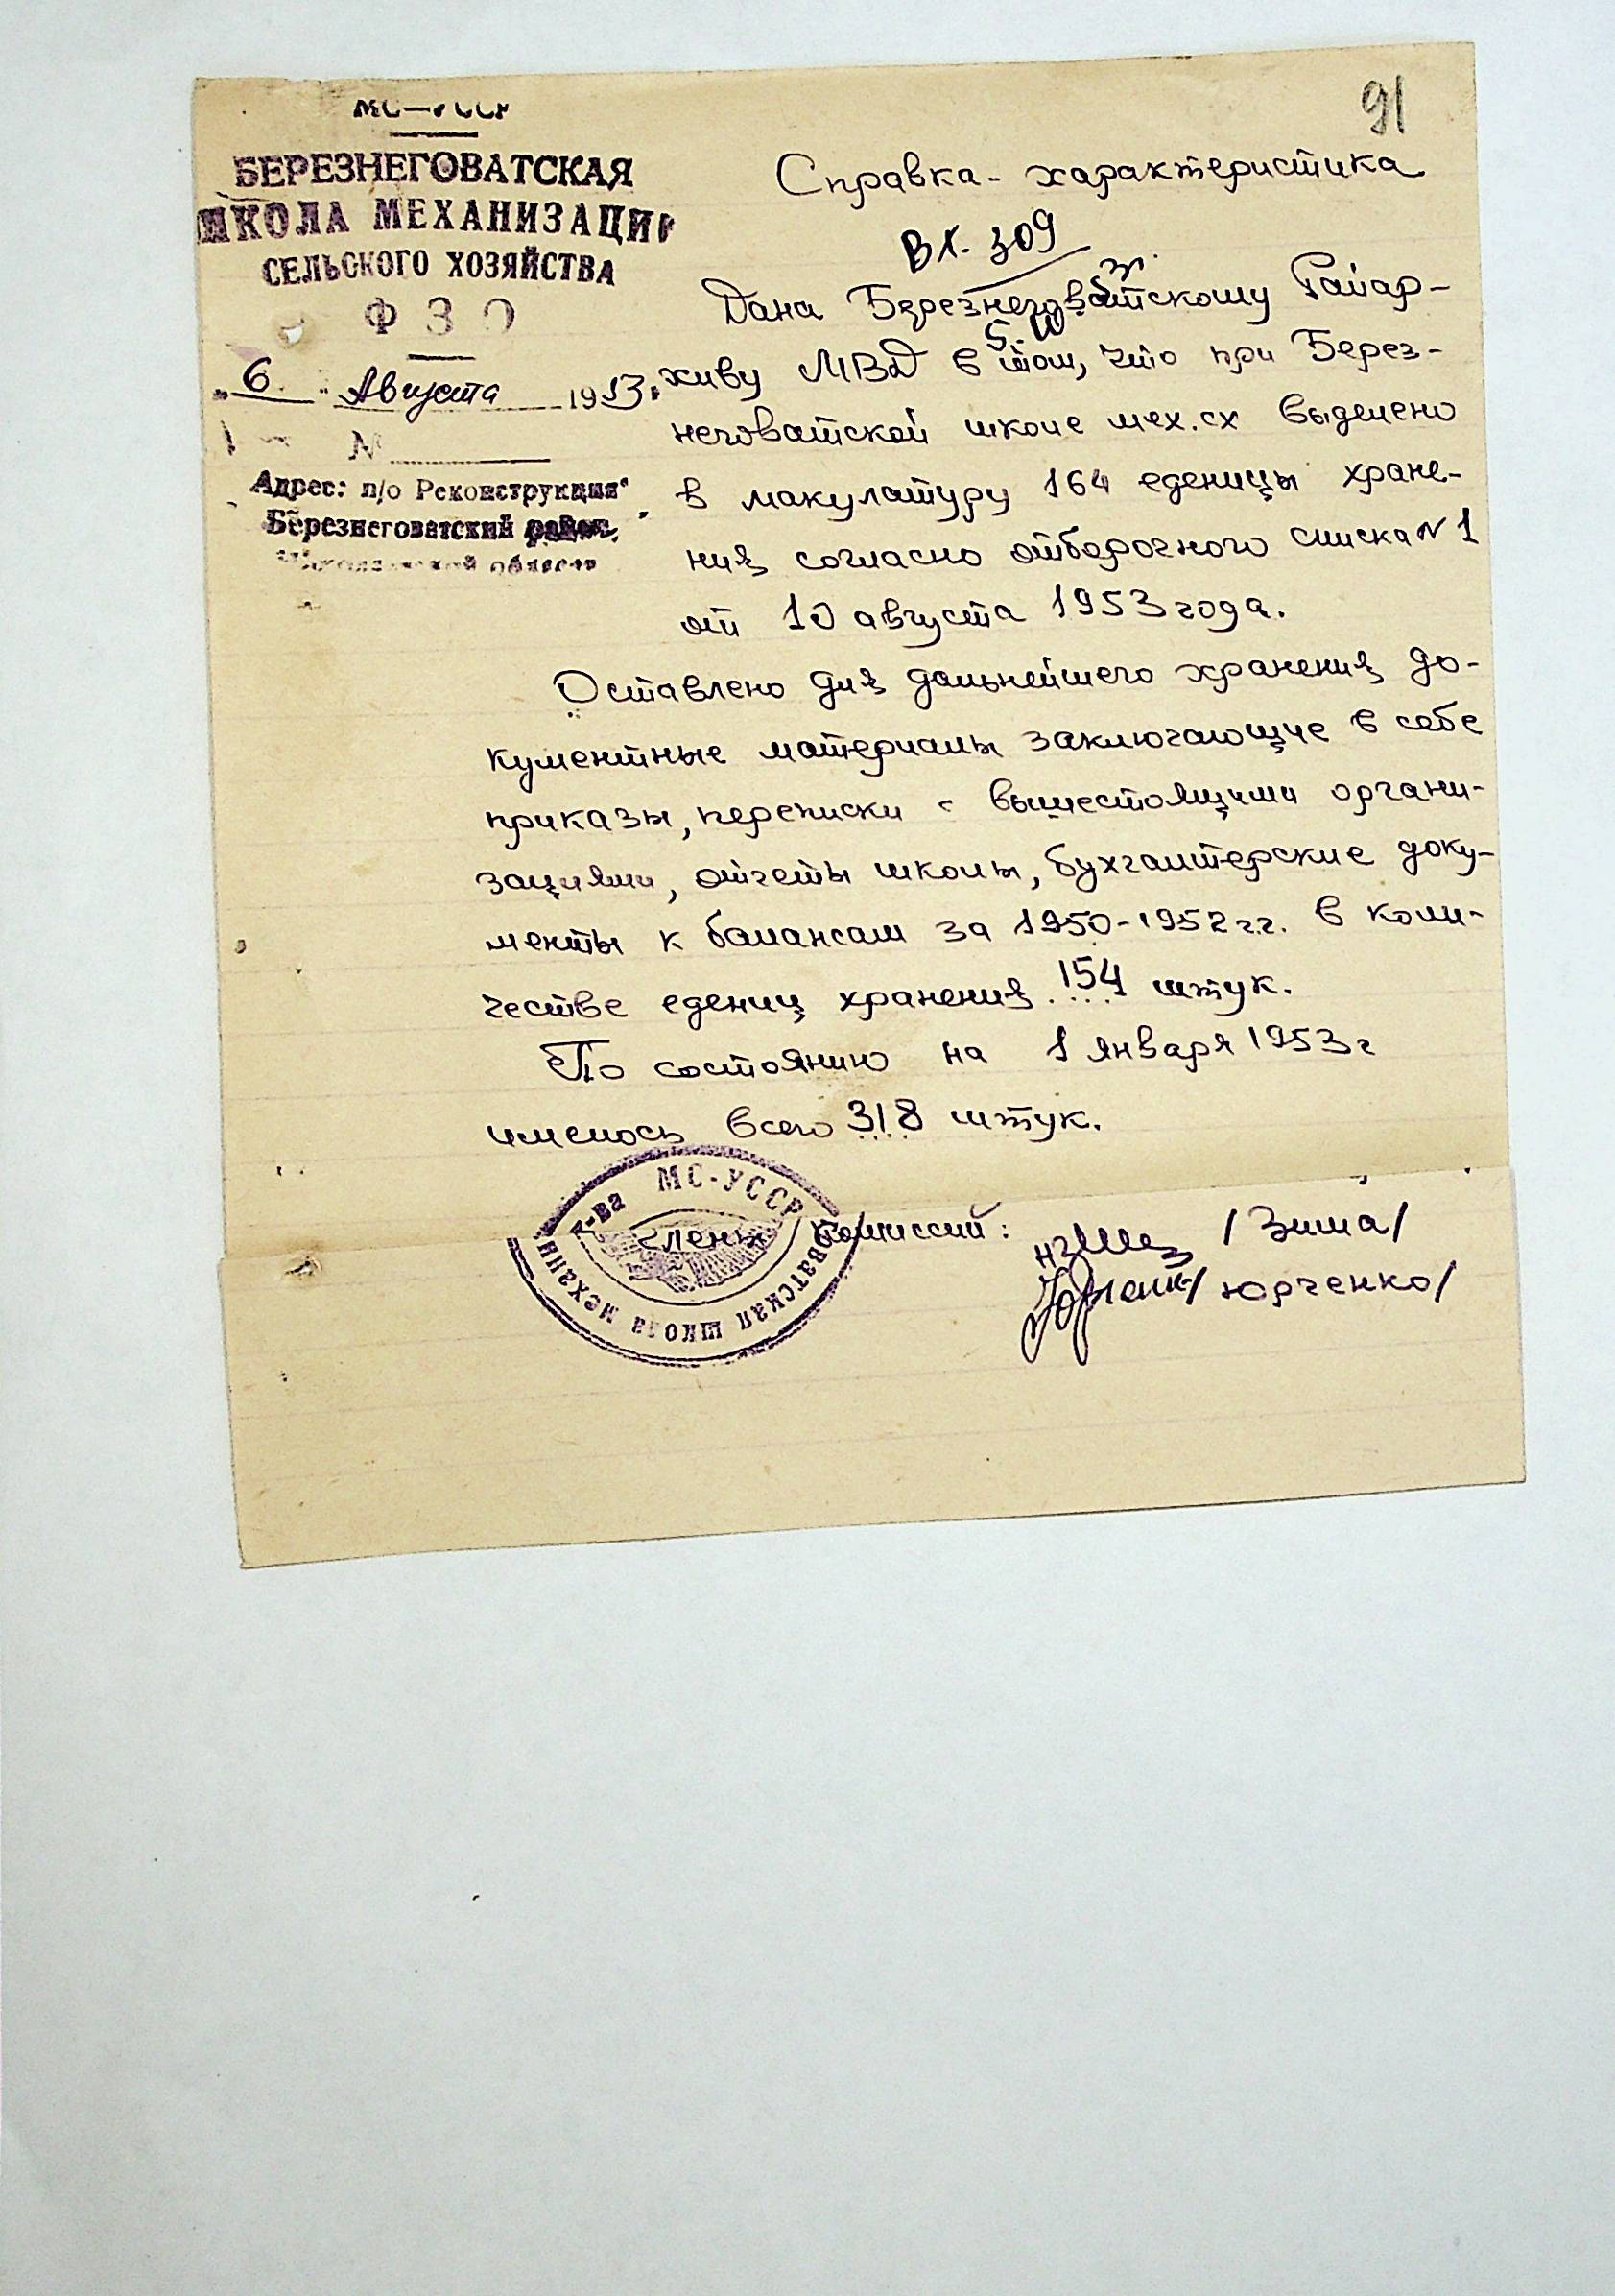 91
МС—УССР
БЕРЕЗНЕГОВАТСКАЯ
ШКОЛА МЕХАНИЗАЦИИ
СЕЛЬСКОГО ХОЗЯЙСТВА
Ф З О
„6" Августа 1953.
№
Адрес: п/о Реконструкция"
Березнеговатский район,
Николаевской области
Справка - характеристика
Вх. 309
Дана Березнеговатскому Райар-
хиву МВД в том, что при Берез-
неговатской школе мех.сх выделено
в макулатуру 164 еденицы хране-
ния согласно отборочного списка N 1
от 10 августа 1953 года.
Оставлено для дальнейшего хранения до-
кументные материалы заключающие в себе
приказы, переписки с вышестоящими органи-
зациями, отчеты школы, бухгалтерские доку-
менты к балансам за 1950-1952 г.г. в коли-
честве едениц хранения 154 штук.
По состоянию на 1 января 1953 г
имелось всего 318 штук.
Члены комиссий: /Зима/
/Юрченко/
х-ва МС-УССР
оватская школа механи